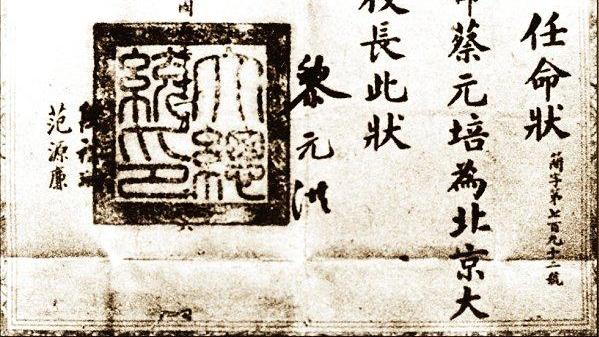 任命狀
簡字第七百九十二號
命蔡元培為北京大
校長此狀
黎元洪
大總統印
范源廉